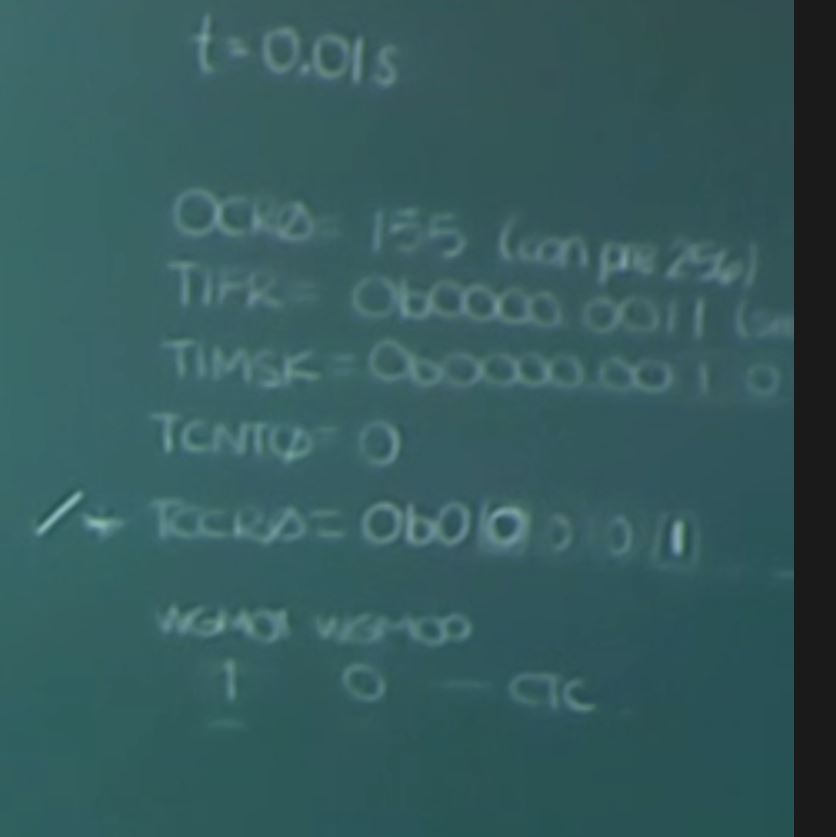 t=0.01s
OCR0= 155 (con pre 256)
TIFR= 0b0000 0011
TIMSK=0b0000.0010
TCNT0= 0
TCCR0=0b00001
WGM01 WGM00
1 0 — CTC